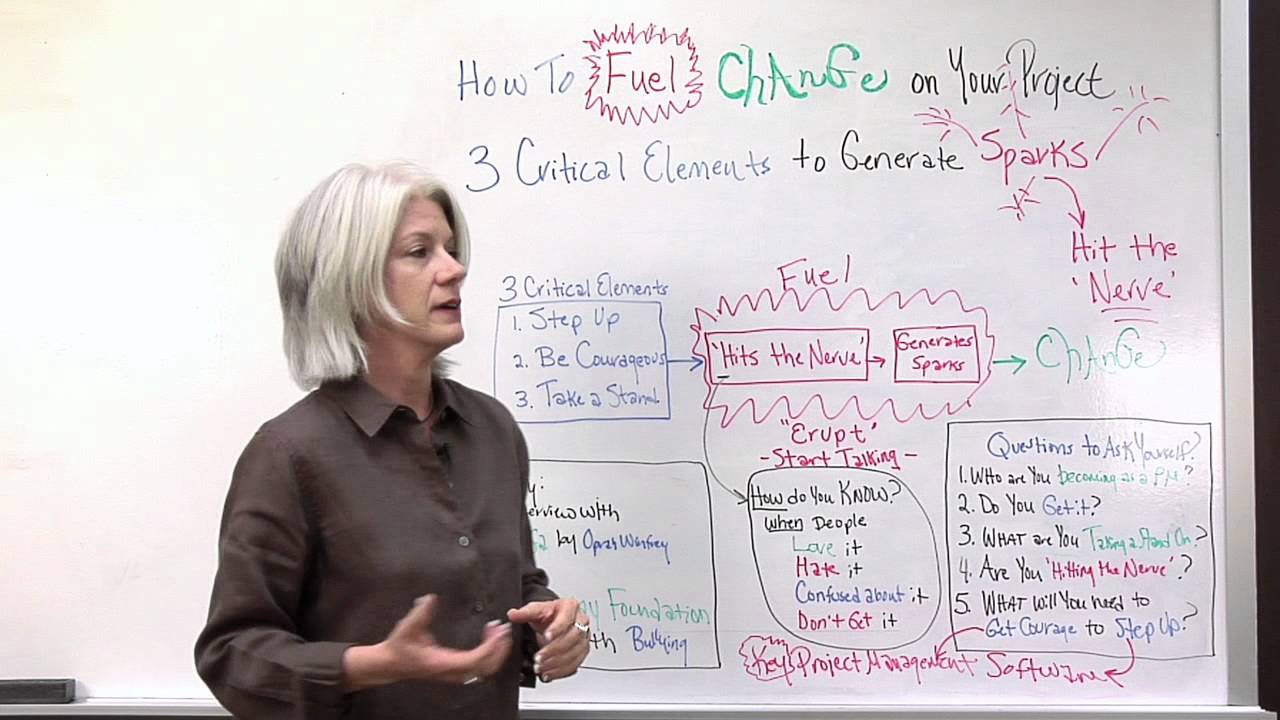 How To Fuel ChAnGe on Your Project
3 Critical Elements to Generate Sparks
Hit the
'Nerve'
3 Critical Elements
1. Step Up
2. Be Courageous
3. Take a Stand
Fuel
'Hits the Nerve'
Generates
Sparks
ChAnGe
"Erupt"
- Start Talking -
How do You KNOW?
When People
Love it
Hate it
Confused about it
Don't Get it
y:
erview with
by Oprah Winfrey
Foundation
Bullying
Questions to Ask Yourself?
1. WHo are You becoming as a PM?
2. Do You Get it?
3. WHAT are You Taking a Stand On?
4. Are You 'Hitting the Nerve'.?
5. WHAT will You need to
Get Courage to Step Up?
Key Project Management Software